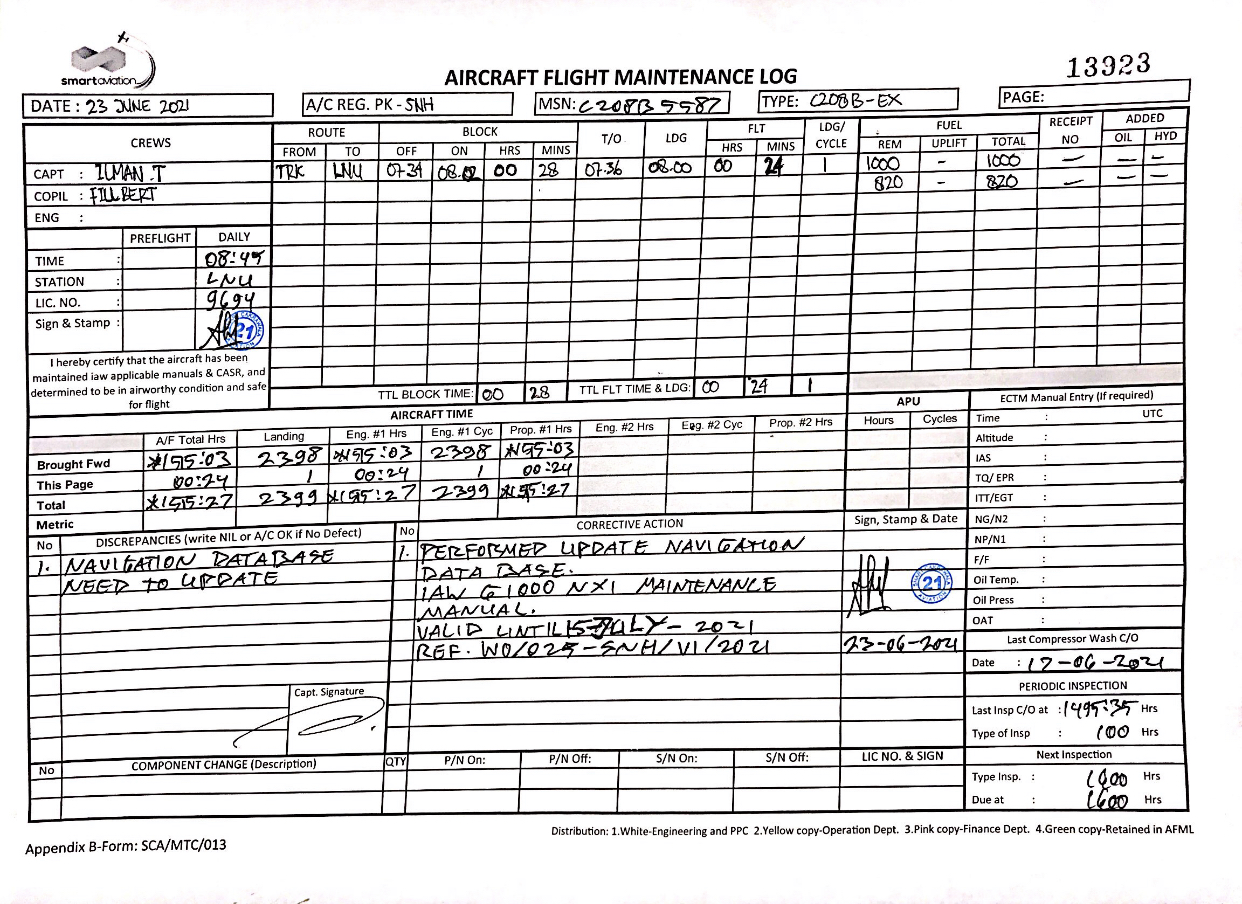 smartaviation
AIRCRAFT FLIGHT MAINTENANCE LOG
13923
DATE : 23 JUNE 2021
A/C REG. PK - SNH
MSN: C208B5587
TYPE: C208B-EX
PAGE:
CREWS
ROUTE BLOCK T/O LDG FLT LDG/ CYCLE FUEL RECEIPT NO ADDED
FROM TO OFF ON HRS MINS HRS MINS REM UPLIFT TOTAL OIL HYD
CAPT : ILMAN.T TRK LNU 07.34 08.02 00 28 07.36 08.00 00 24 1 1000 - 1000 - - -
COPIL : FILLBERT 820 - 820 - - -
ENG :
PREFLIGHT DAILY
TIME : 08:45
STATION : LNU
LIC. NO. : 9694
Sign & Stamp : 21
I hereby certify that the aircraft has been
maintained iaw applicable manuals & CASR, and
determined to be in airworthy condition and safe
for flight
TTL BLOCK TIME: 00 28 TTL FLT TIME & LDG: 00 24 1
AIRCRAFT TIME
APU
ECTM Manual Entry (If required)
A/F Total Hrs Landing Eng. #1 Hrs Eng. #1 Cyc Prop. #1 Hrs Eng. #2 Hrs Eng. #2 Cyc Prop. #2 Hrs Hours Cycles
Brought Fwd 2398 2398
This Page 00:24 1 00:24 1 00:24
Total 2399 2399
Metric
Time : UTC
Altitude :
IAS :
TQ/ EPR :
ITT/EGT :
NG/N2 :
NP/N1 :
F/F :
Oil Temp. :
Oil Press :
OAT :
No DISCREPANCIES (write NIL or A/C OK if No Defect)
1. NAVIGATION DATABASE
NEED TO UPDATE
Capt. Signature
No CORRECTIVE ACTION Sign, Stamp & Date
1. PERFORMED UPDATE NAVIGATION
DATA BASE.
IAW G1000 NXI MAINTENANCE
MANUAL.
VALID UNTIL 15 JULY - 2021
REF. WO/025-SNH/VI/2021
21
23-06-2021
Last Compressor Wash C/O
Date : 17-06-2021
PERIODIC INSPECTION
Last Insp C/O at : 1495:35 Hrs
Type of Insp : 100 Hrs
Next Inspection
Type Insp. : Hrs
Due at : 1600 Hrs
No COMPONENT CHANGE (Description) QTY P/N On: P/N Off: S/N On: S/N Off: LIC NO. & SIGN
Distribution: 1.White-Engineering and PPC 2.Yellow copy-Operation Dept. 3.Pink copy-Finance Dept. 4.Green copy-Retained in AFML
Appendix B-Form: SCA/MTC/013